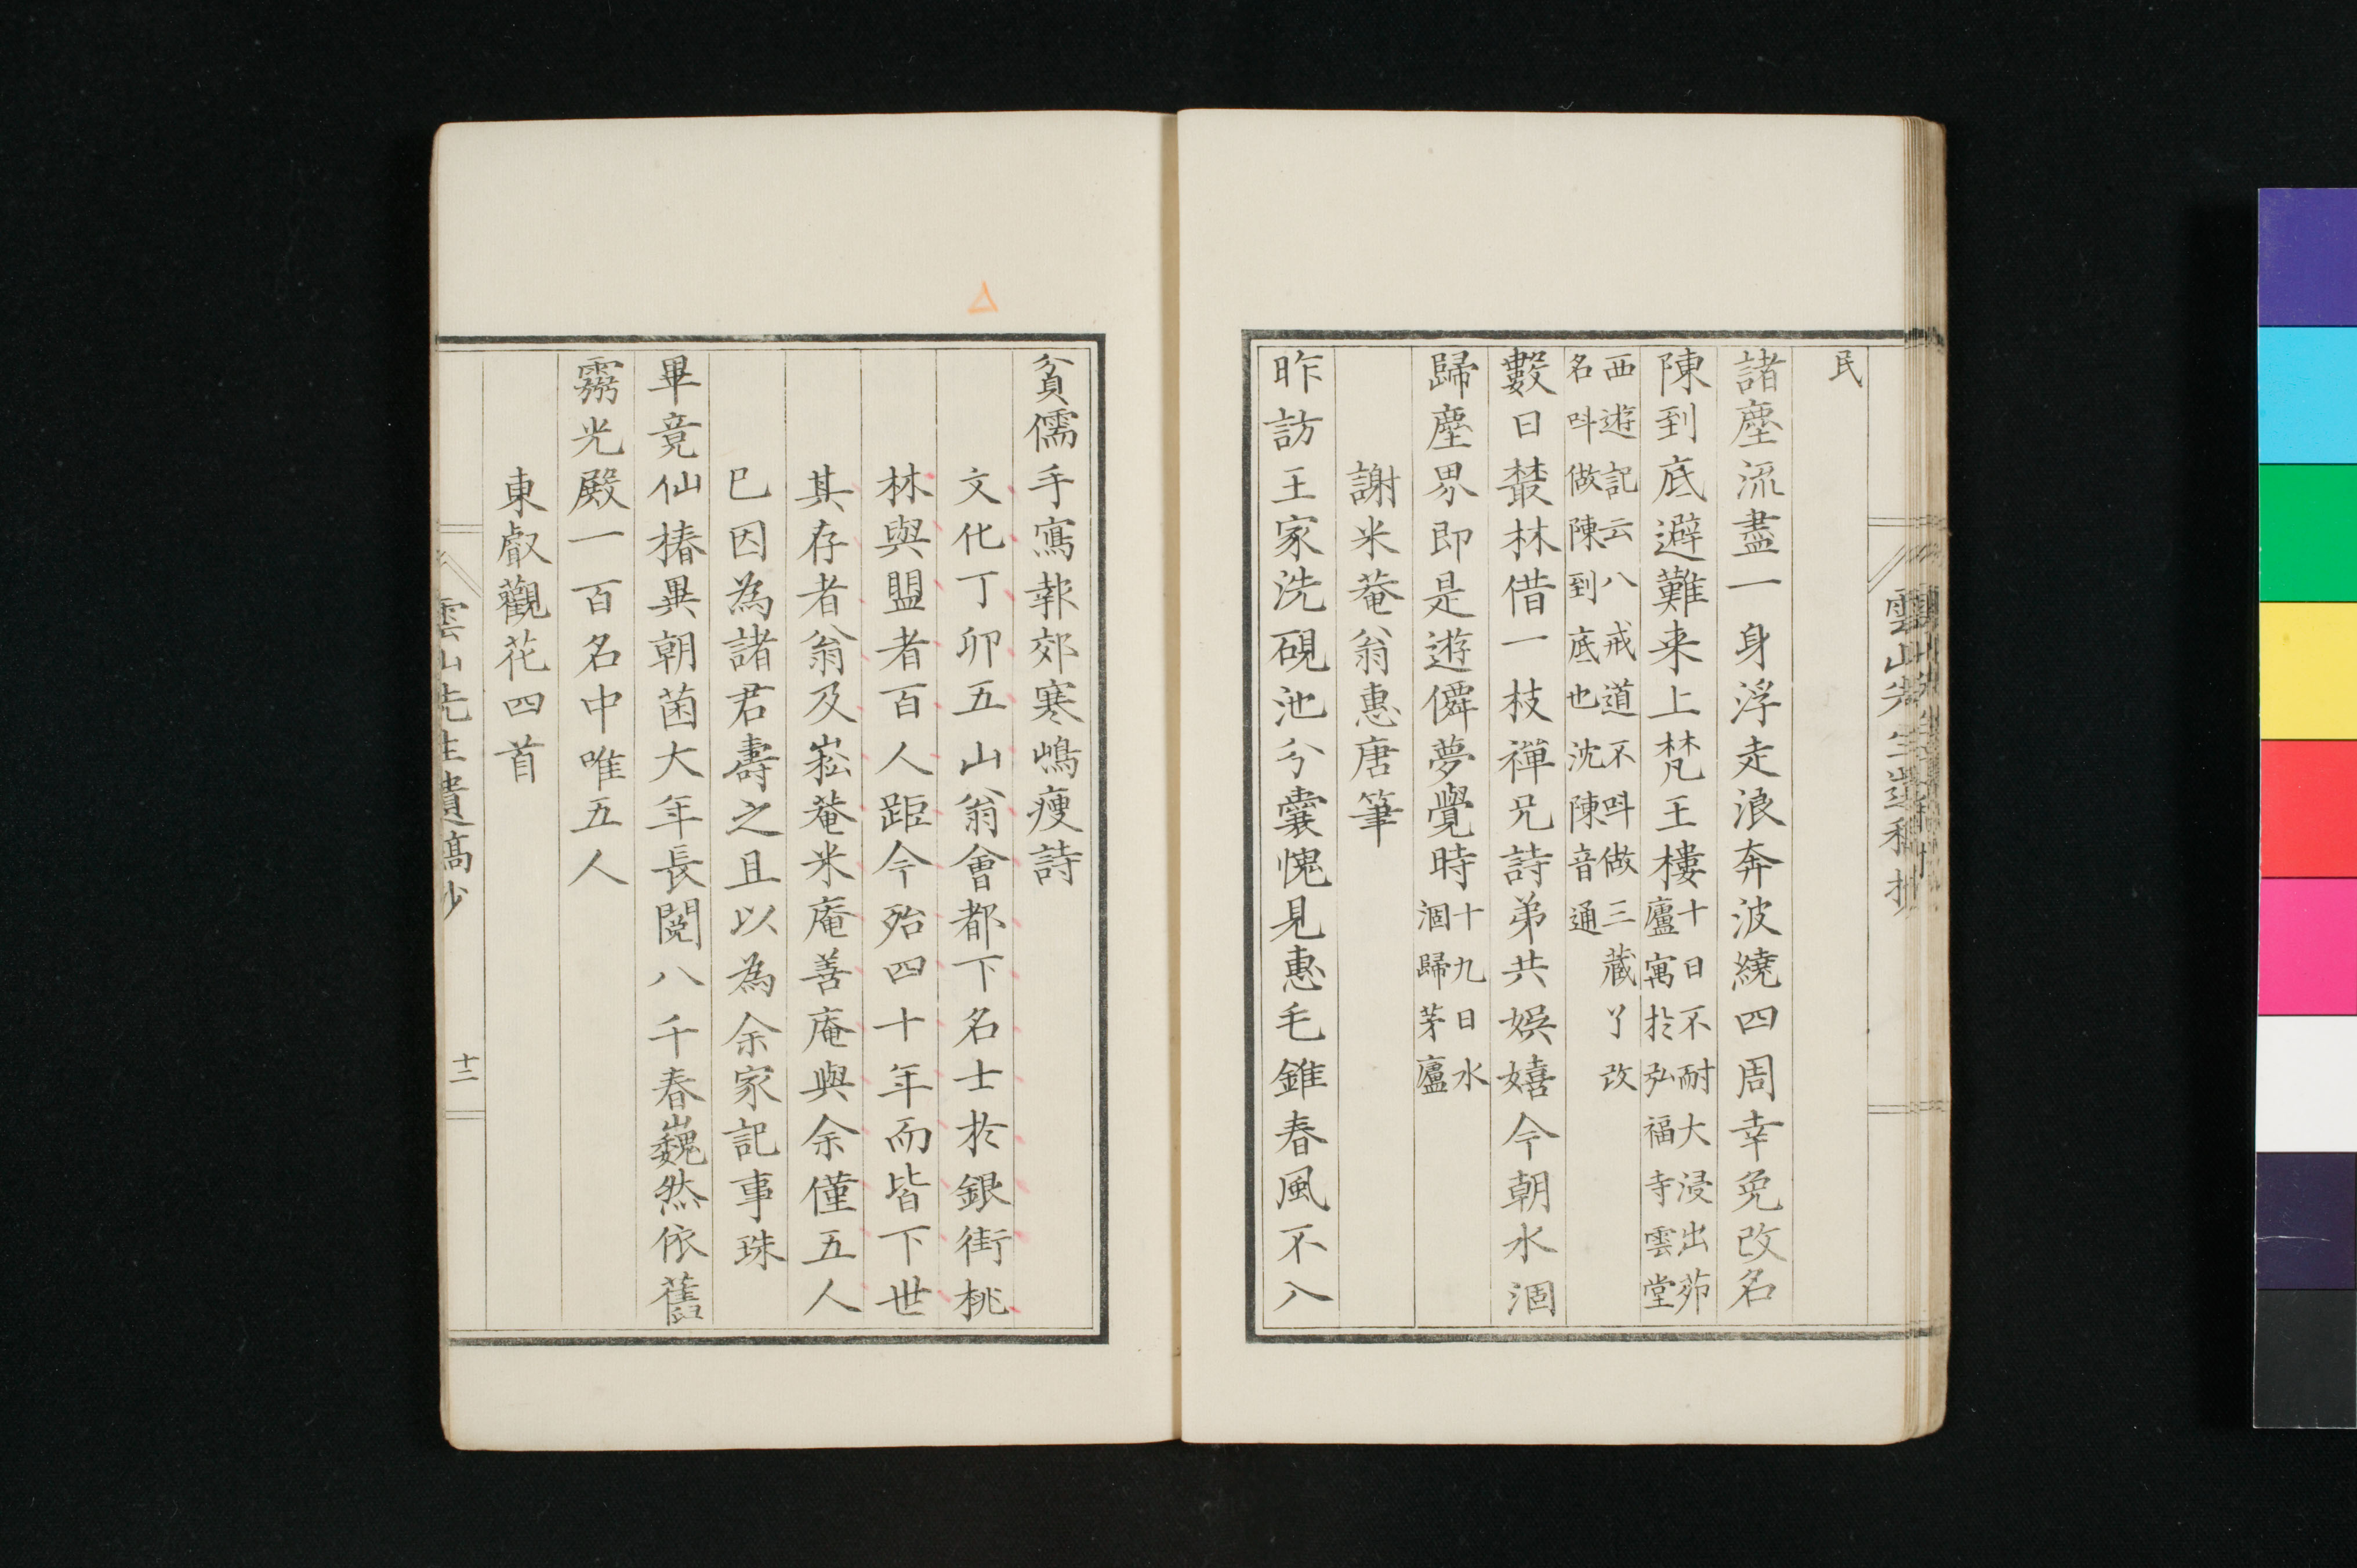 民
諸塵流盡一身浮走浪奔波繞四周幸免改名
陳到底避難来上梵王樓十日不耐大浸出茆廬寓於弘福寺雲堂
西遊記云八戒道不呌做三藏了改名呌做陳到底也沈陳音通
數日叢林借一枝禪兄詩弟共娯嬉今朝水涸
歸塵界即是遊僊夢覺時十九日水涸歸茅廬
謝米菴翁惠唐筆
昨訪王家洗硯池兮囊愧見惠毛錐春風不入
貧儒手寫報郊寒嶋瘦詩
文化丁卯五山翁會都下名士於銀街桃
林與盟者百人距今殆四十年而皆下世
其存者翁及崧菴米庵善庵與余僅五人
巳因為諸君壽之且以為余家記事珠
畢竟仙椿異朝菌大年長閱八千春巍然依舊
光殿一百名中唯五人
東叡觀花四首
雲山先生遺稿抄
十二